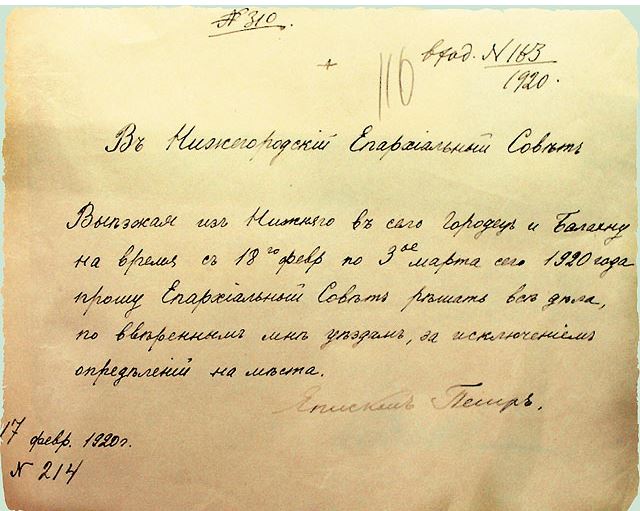 № 310.
вход. № 163
1920.
116
Въ Нижегородскій Епархіальный Совѣтъ
Выѣзжая изъ Нижняго въ село Городецъ и Балахну
на время съ 18го февр по 3ое марта сего 1920 года
прошу Епархіальный Совѣтъ рѣшать всѣ дѣла,
по ввѣреннымъ мнѣ уѣздамъ, за исключеніемъ
опредѣленій на мѣста.
Епископъ Петръ.
17 февр. 1920 г.
№ 214